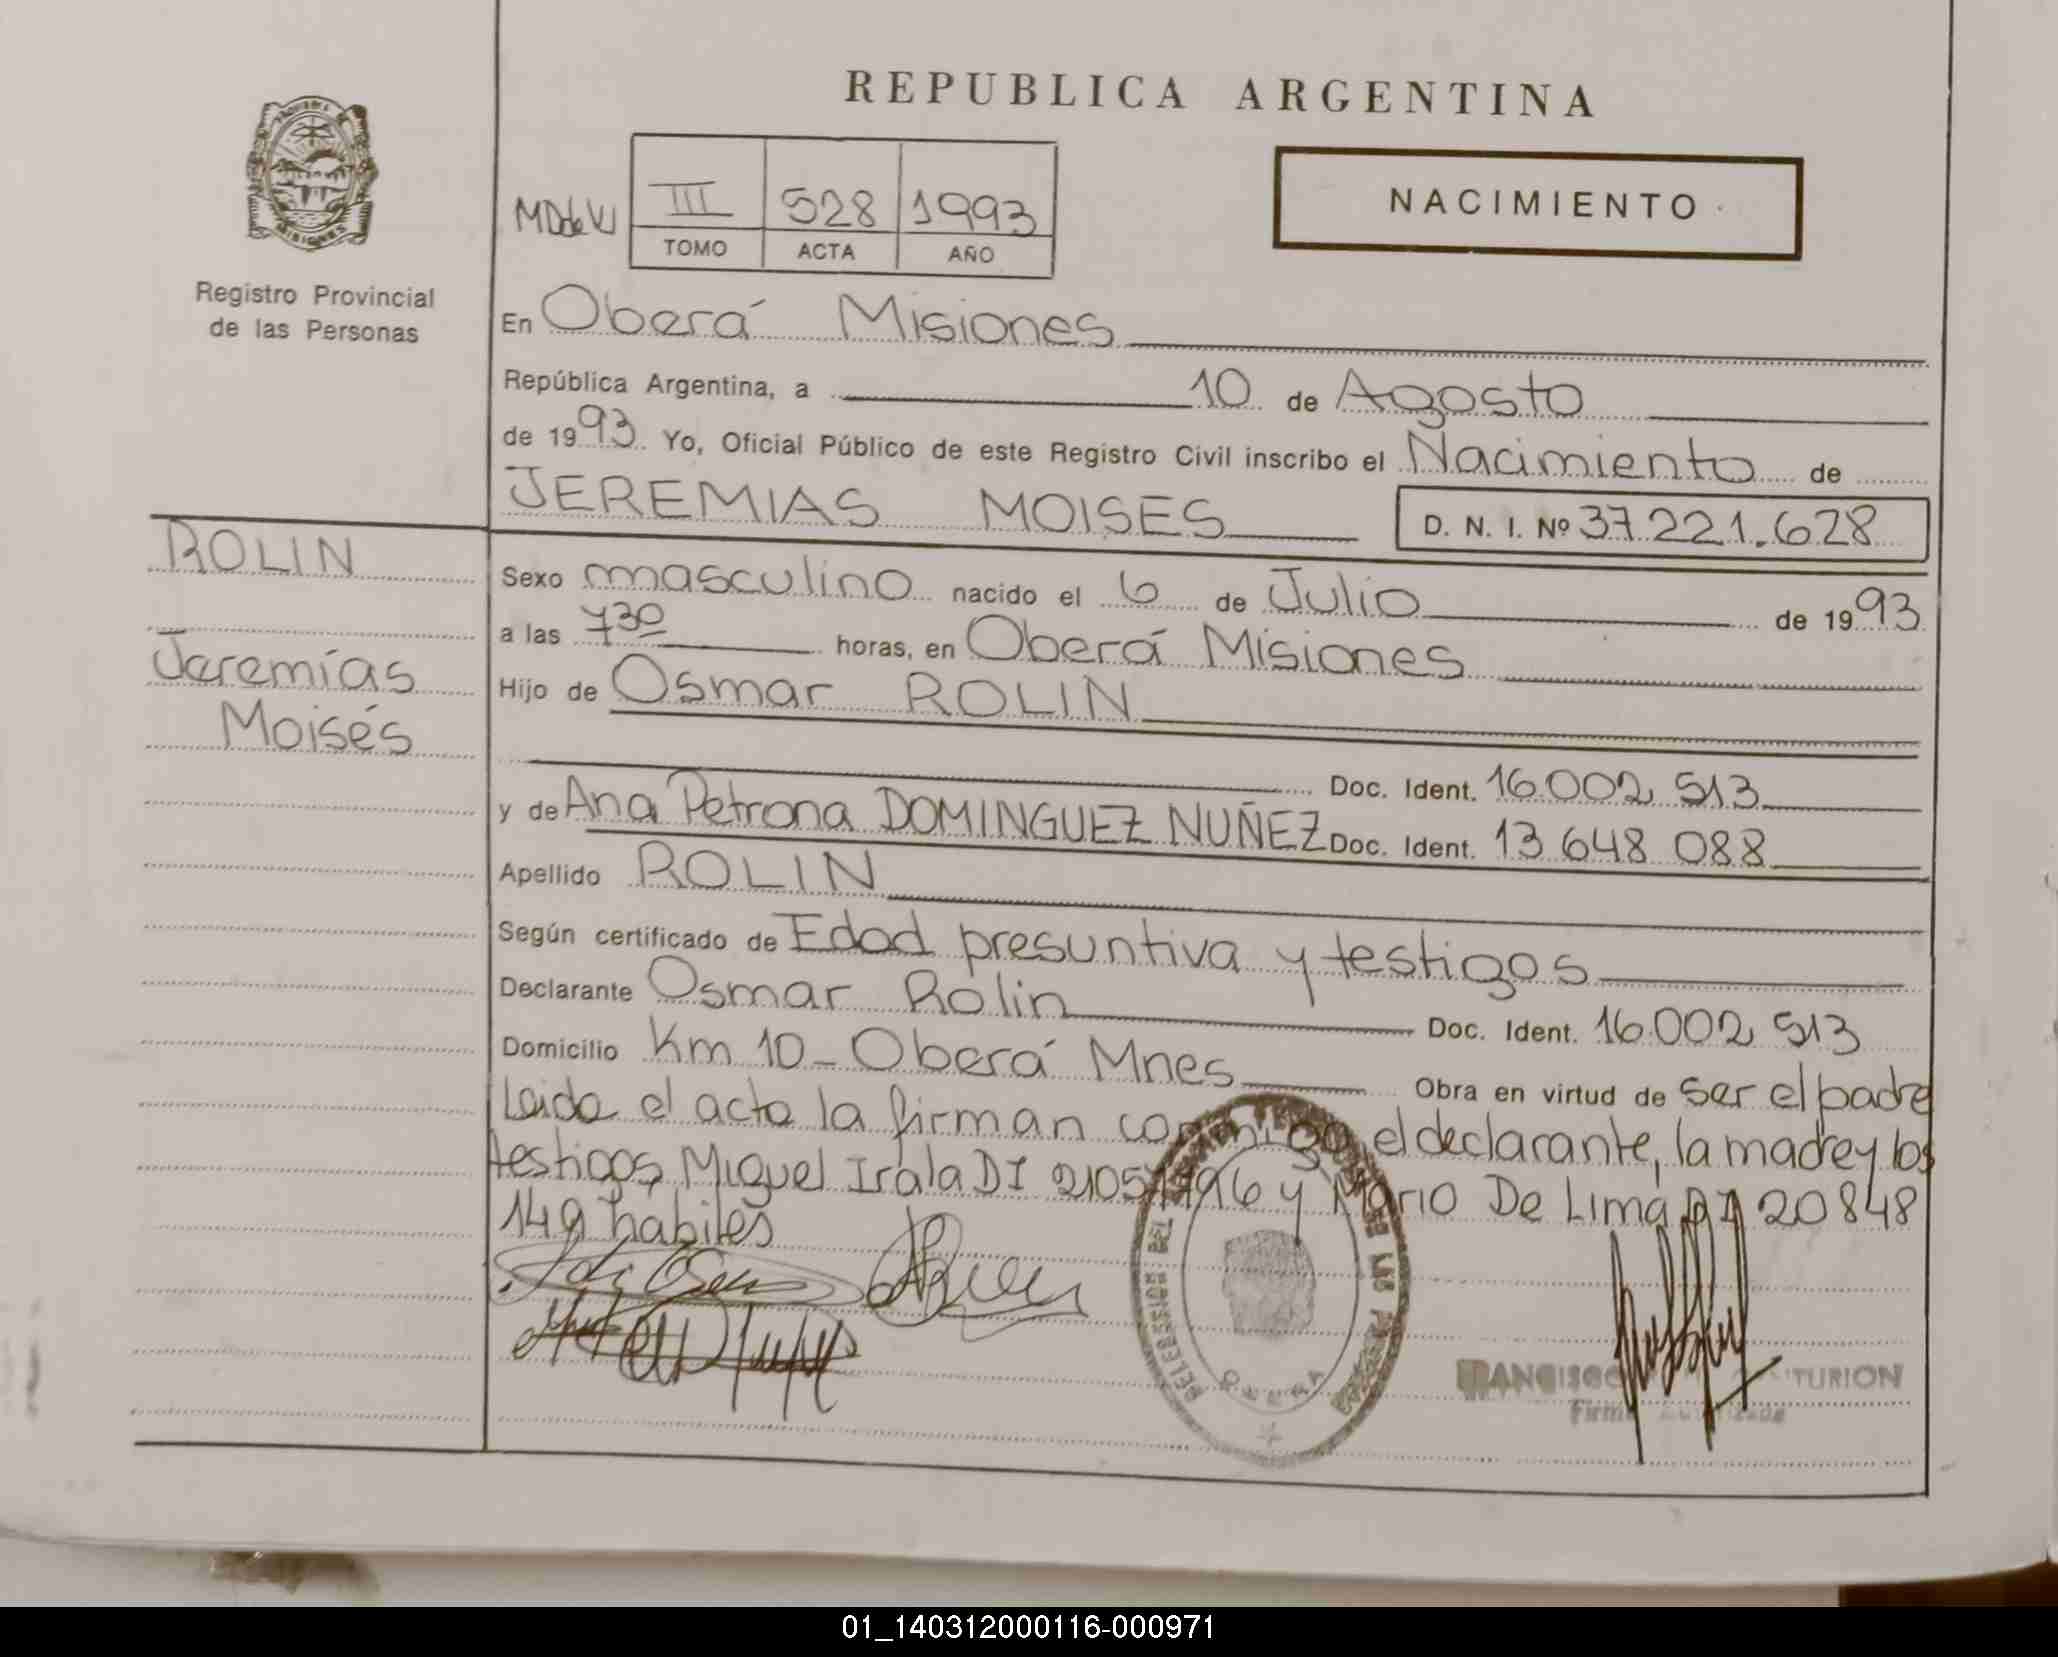 REPUBLICA ARGENTINA
NACIMIENTO
MDdeV III 528 1993
TOMO ACTA AÑO
Registro Provincial
de las Personas
MISIONES
En Oberá Misiones
República Argentina, a 10 de Agosto
de 1993 Yo, Oficial Público de este Registro Civil inscribo el Nacimiento de
JEREMIAS MOISES D. N. I. Nº 37 221.628
ROLIN
Jeremías
Moisés
Sexo masculino nacido el 6 de Julio de 1993
a las 730 horas, en Oberá Misiones
Hijo de Osmar ROLIN
Doc. Ident. 16.002 513
y de Ana Petrona DOMINGUEZ NUÑEZ Doc. Ident. 13 648 088
Apellido ROLIN
Según certificado de Edad presuntiva y testigos
Declarante Osmar Rolin Doc. Ident. 16.002 513
Domicilio Km 10 - Oberá Mnes Obra en virtud de ser el padre
Leida el acta la firman conmigo el declarante, la madre y los
testigos Miguel Irala DI y Mario De Lima DI 20848
149 habiles
DELEGACION DEL DE LAS
OBERA
FRANCISCO TURION
Firma
01_140312000116-000971